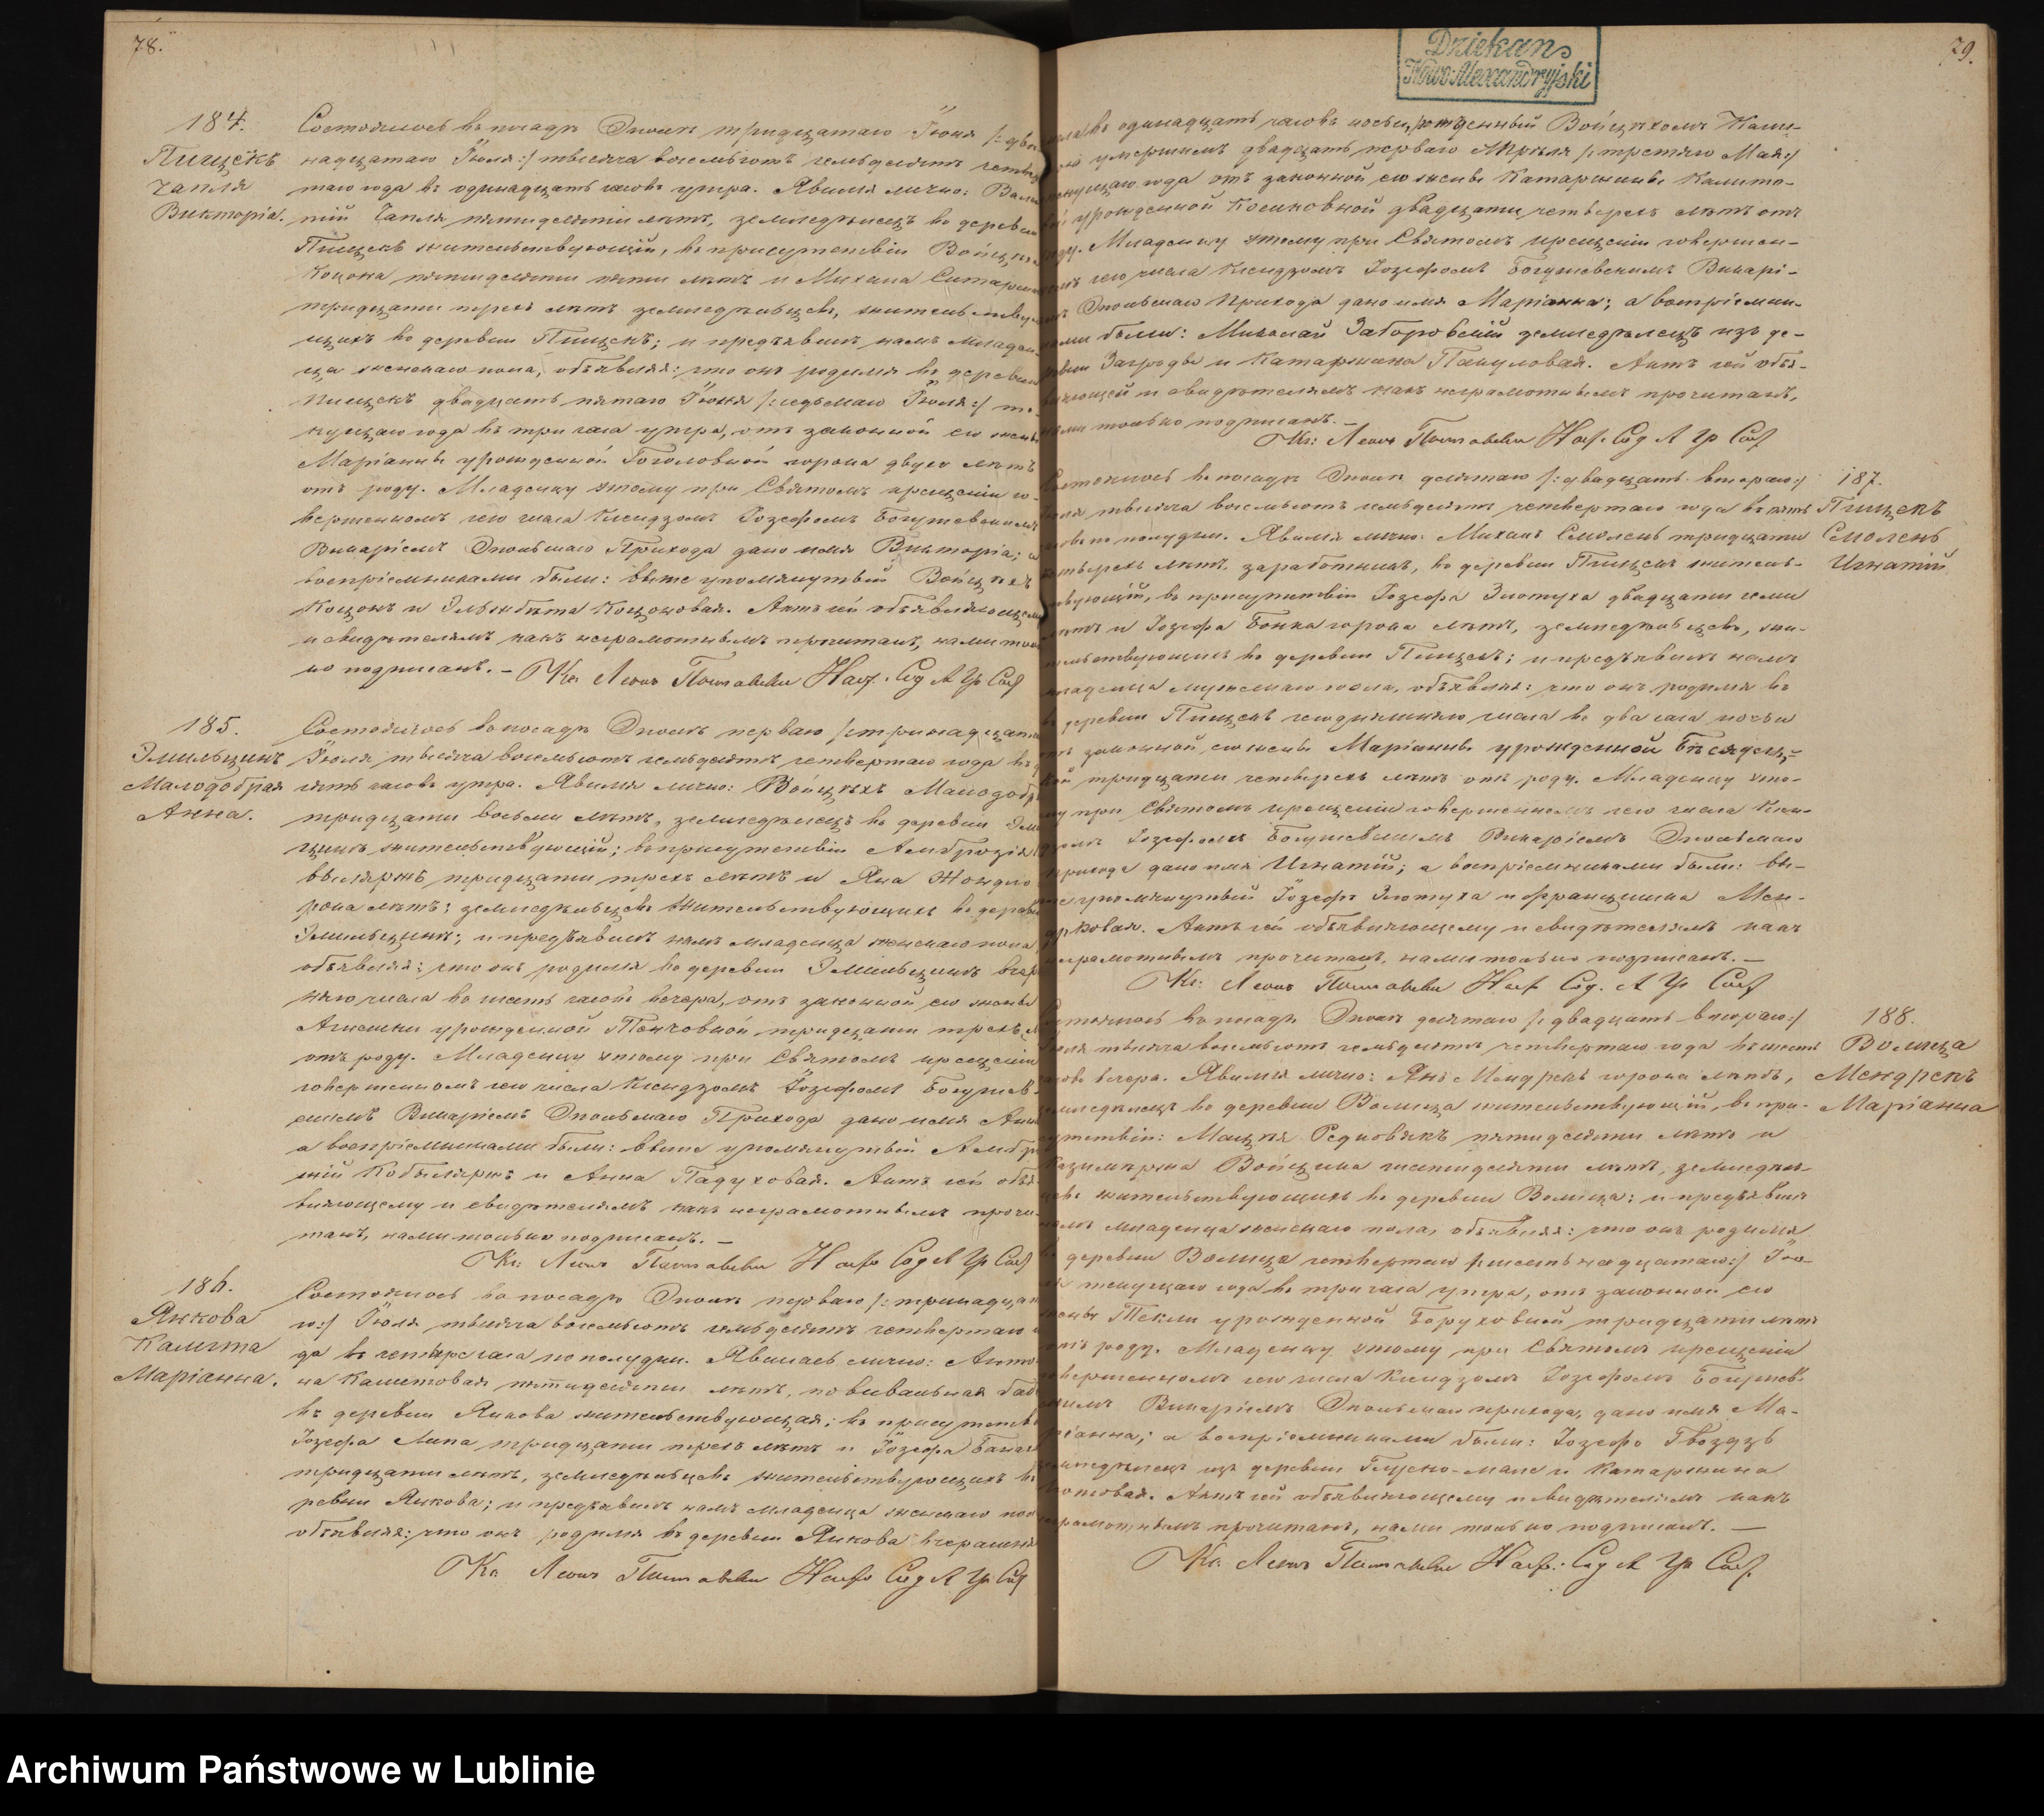 78.
184.
Пищекъ
Чапля
Викторія.
Состоялось въ посадѣ Ополе тридцатаго Іюня /:двѣ
надцатаго Іюля:/ тысяча восемьсотъ семьдесятъ четвер
таго года въ одинадцать часовъ утра. Явился лично:
Чапля пятидесяти лѣтъ, земледѣлецъ въ деревни
Пищекъ жительствующій, въ присутствіи Войцѣха
Коцона пятидесяти пяти лѣтъ и Михала
тридцати трехъ лѣтъ земледѣльцевъ, жительствую
щихъ въ деревни Пищекъ; и предъявилъ намъ младен
ца женскаго пола, объявляя: что онъ родился въ деревни
Пищекъ двадцать пятаго Іюня /:седьмаго Іюля:/ те-
кущаго года въ три часа утра, отъ законной его жены
Маріанны урожденной Гоголовной сорока двухъ лѣтъ
отъ роду. Младенцу этому при Святомъ крещеніи со-
вершенномъ сего числа Ксендзомъ Іозефомъ Богушевскимъ
Викаріемъ Опольскаго Прихода дано имя Викторія; а
воспріемниками были: выше упомянутый Войцѣхъ
Коцонъ и Эльжбѣта Коцоновая. Актъ сей объявляющему
и свидѣтелямъ какъ неграмотнымъ прочитанъ, нами толь
ко подписанъ. –
185.
Эмильцинъ
Малодобрая
Анна.
Состоялось въ посадѣ Ополе перваго /:тринадцата
Іюля тысяча восемьсотъ семьдесятъ четвертаго года въ
сять часовъ утра. Явился лично: Войцѣхъ Малодобр
тридцати восьми лѣтъ, земледѣлецъ въ деревни Эми
цинъ жительствующій; въ присутствіи Амброзія
тридцати трехъ лѣтъ и Яна
рока лѣтъ; земледѣльцевъ жительствующихъ въ деревни
Эмильцинъ; и предъявилъ намъ младенца женскаго пола,
объявляя: что онъ родился въ деревни Эмильцинъ вчер
няго числа въ шесть часовъ вечера, отъ законной его жены
Агнешки урожденной тридцати трехъ
отъ роду. Младенцу этому при Святомъ крещеніи
совершенномъ сего числа Ксендзомъ Іозефомъ Богушев-
скимъ Викаріемъ Опольскаго Прихода дано имя Анна
а воспріемниками были: выше упомянутый Амбро
и Анна Падуховая. Актъ сей объя
вляющему и свидѣтелямъ какъ неграмотнымъ прочи-
танъ, нами только подписанъ. –
186.
Янкова
Калита
Маріанна.
Состоялось въ посадѣ Ополе перваго /:тринадцат
го:/ Іюля тысяча восемьсотъ семьдесятъ четвертаго
да въ четыре часа по полудни. Явилась лично: Анто
на Калитовая пятидесяти лѣтъ, повивальная баб
въ деревни Янкова жительствующая; въ присутстві
Іозефа Липа тридцати трехъ лѣтъ и Іозефа
тридцати лѣтъ, земледѣльцевъ жительствующихъ въ
ревни Янкова; и предъявилъ намъ младенца женскаго пол
объявляя: что онъ родился въ деревни Янкова вчерашня
79.
Dziekan
Nowo-Alexandryjski
въ одинадцать часовъ ночи, рожденный Войцѣхомъ Кали-
умершимъ двадцать перваго Апрѣля /:третяго Мая:/
кущаго года отъ законной его жены Катаржины Калито-
урожденной двадцати четырехъ лѣтъ отъ
роду. Младенцу этому при Святомъ крещеніи совершен-
сего числа Ксендзомъ Іозефомъ Богушевскимъ Викарі-
Опольскаго Прихода дано имя Маріанна; а воспріемни-
ками были: Миколай Заборовскій земледѣлецъ изъ де-
ревни Загроды и Катаржина Пикуловая. Актъ сей объя-
вляющей и свидѣтелямъ какъ неграмотнымъ прочитанъ,
нами только подписанъ. –
187.
Пищекъ
Смоленъ
Игнатій
Состоялось въ посадѣ Ополе десятаго /:двадцать втораго:/
Іюля тысяча восемьсотъ семьдесятъ четвертаго года въ пять
часовъ по полудни. Явился лично: Михалъ Смоленъ тридцати
четырехъ лѣтъ, заработникъ, въ деревни Пищекъ житель-
ствующій, въ присутствіи Іозефа Злотуха двадцати семи
лѣтъ и Іозефа Бонка сорока лѣтъ, земледѣльцевъ, жи-
тельствующихъ въ деревни Пищекъ; и предъявилъ намъ
младенца мужескаго пола, объявляя: что онъ родился въ
деревни Пищекъ сегодняшняго числа въ два часа ночи
отъ законной его жены Маріанны урожденной
тридцати четырехъ лѣтъ отъ роду. Младенцу это-
му при Святомъ крещеніи совершенномъ сего числа Ксен-
дзомъ Іозефомъ Богушевскимъ Викаріемъ Опольскаго
прихода дано имя Игнатій; а воспріемниками были: вы-
ше упомянутый Іозефъ Злотуха и Францишка Мен-
дрковая. Актъ сей объявляющему и свидѣтелямъ какъ
неграмотнымъ прочитанъ, нами только подписанъ. –
188.
Волица
Мендрекъ
Маріанна
Состоялось въ посадѣ Ополе десятаго /:двадцать втораго:/
Іюля тысяча восемьсотъ семьдесятъ четвертаго года въ шесть
часовъ вечера. Явился лично: Янъ Мендрекъ сорока лѣтъ,
земледѣлецъ въ деревни Волица жительствующій, въ при-
сутствіи: Мацѣя пятидесяти лѣтъ и
Казимѣржа Войцика шестидесяти лѣтъ, земледѣль-
цевъ жительствующихъ въ деревни Волица; и предъявилъ
намъ младенца женскаго пола, объявляя: что онъ родился
въ деревни Волица четвертаго /:шестьнадцатаго:/ Ію-
ля текущаго года въ три часа утра, отъ законной его
жены Текли урожденной тридцати лѣтъ
отъ роду. Младенцу этому при Святомъ крещеніи
совершенномъ сего числа Ксендзомъ Іозефомъ Богушев-
скимъ Викаріемъ Опольскаго прихода, дано имя Ма-
ріанна; а воспріемниками были: Іозефъ Гвоздзь
земледѣлецъ изъ деревни и Катаржина
Актъ сей объявляющему и свидѣтелямъ какъ
неграмотнымъ прочитанъ, нами только подписанъ. –
Archiwum Państwowe w Lublinie